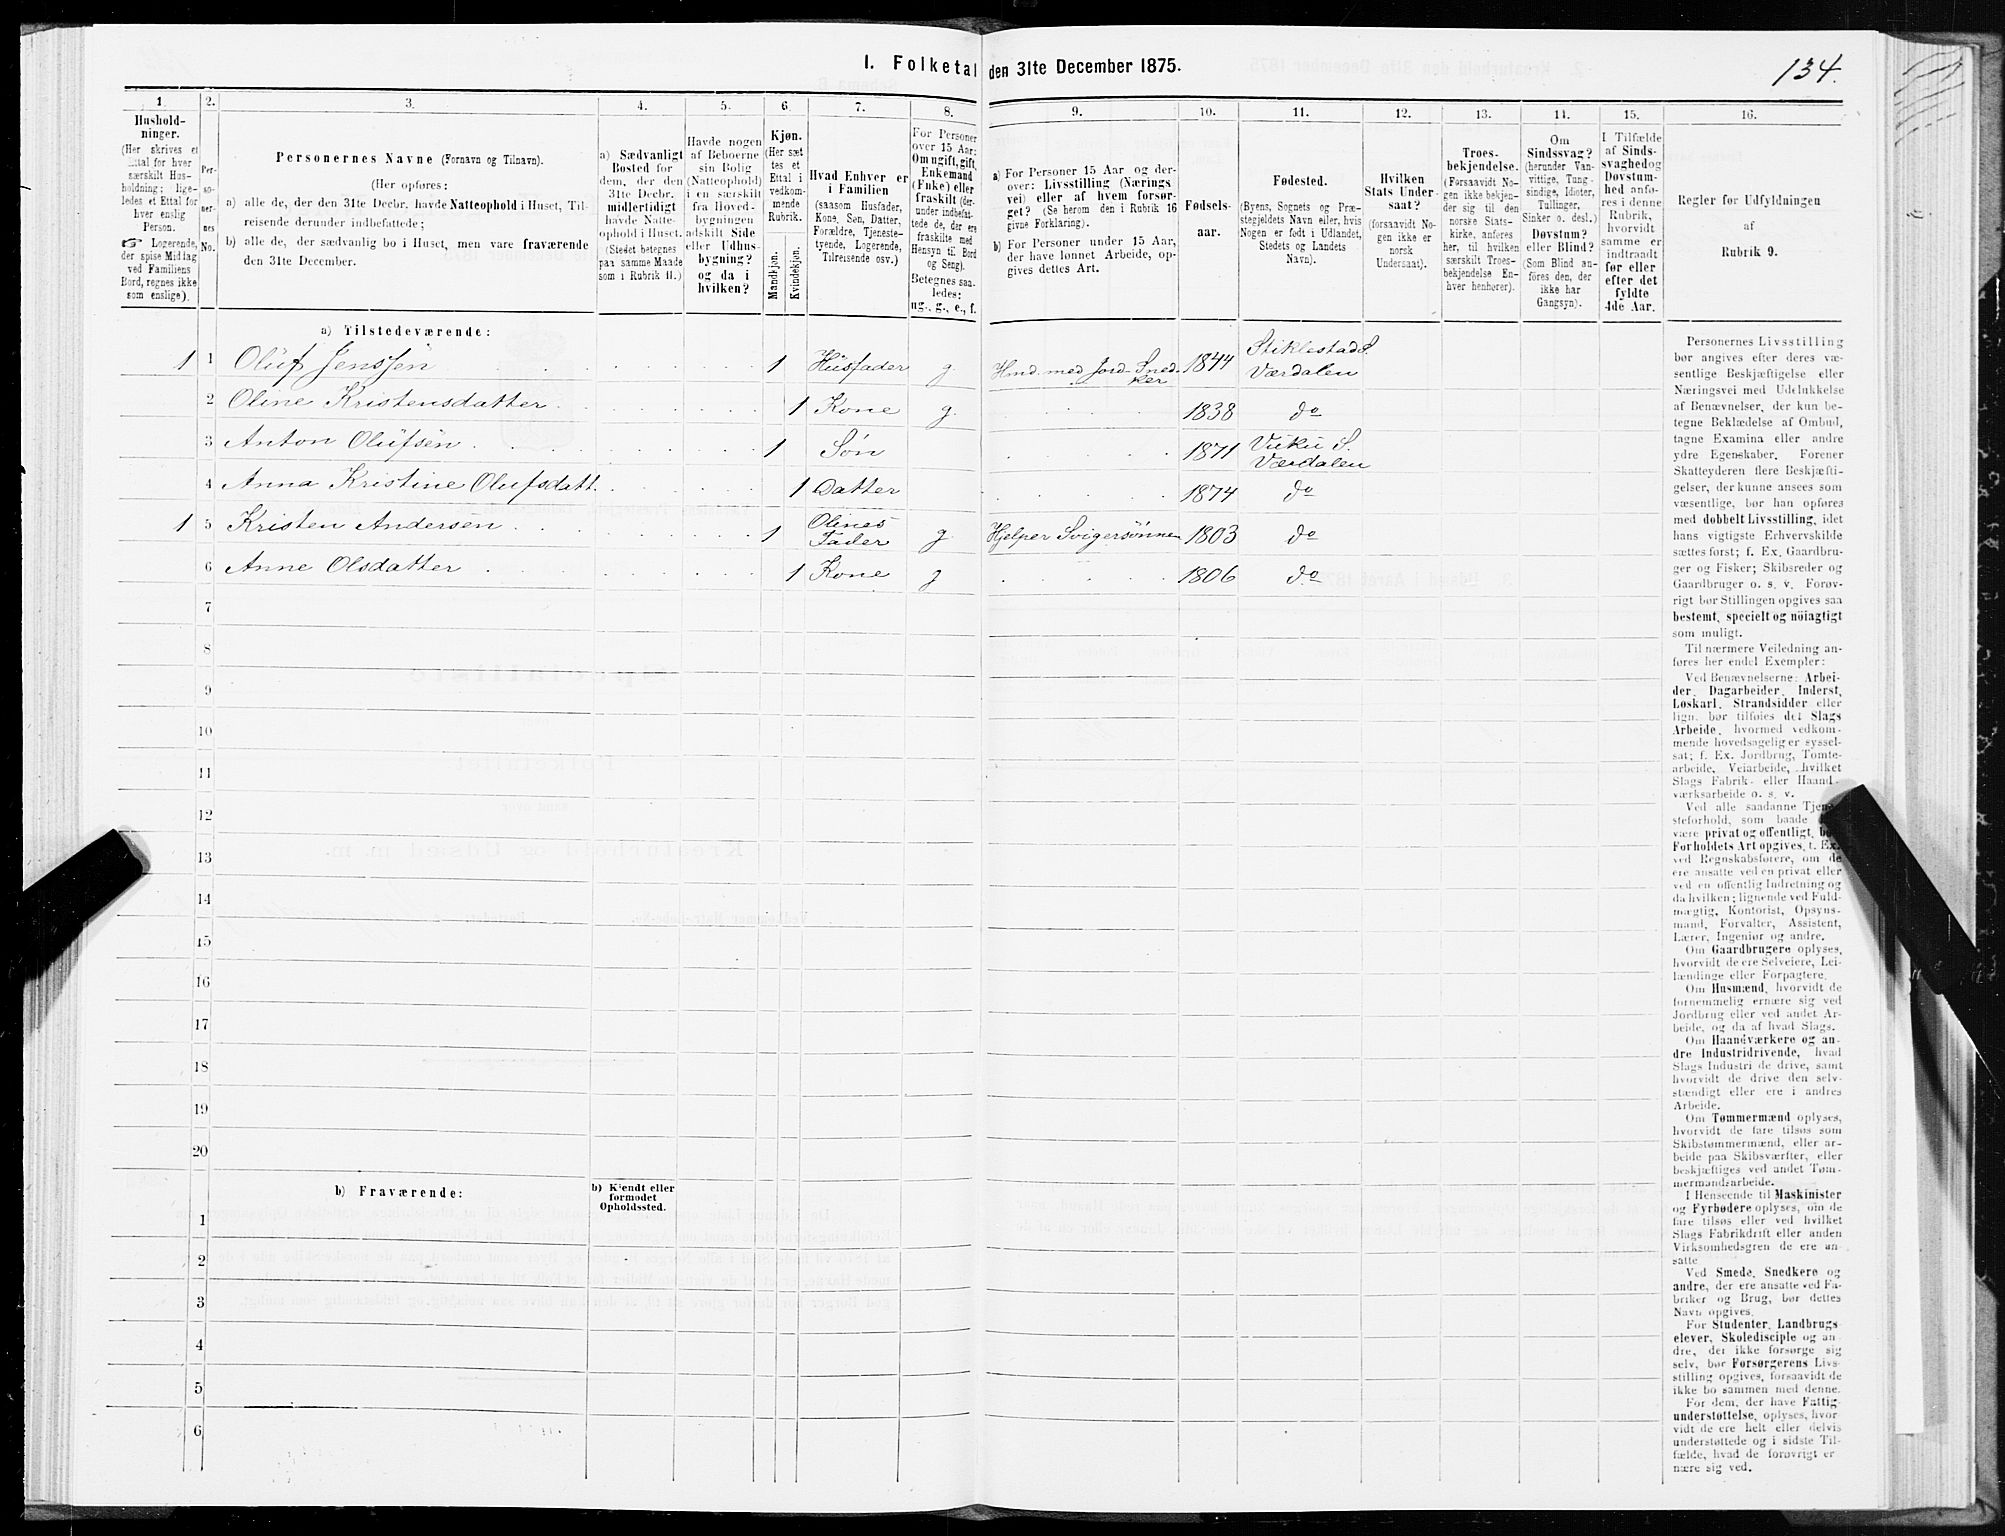 I. Folketal den 31te December 1875.
134.
1.
2.
3.
4.
5.
6.
7.
8.
9.
10.
11.
12.
13.
14.
15.
16.
Hushold-
ninger.
(Her skrives et
Ettal for hver
særskilt Hus-
holdning; lige-
ledes et Ettal for
hver enslig
Person.
☞ Logerende,
der spise Middag
ved Familiens
Bord, regnes ikke
som enslige).
Per-
so-
ner-
nes
No.
Personernes Navne (Fornavn og Tilnavn).
(Her opføres:
a) alle de, der den 31te Decbr. havde Natteophold i Huset, Til-
reisende derunder indbefattede;
b) alle de, der sædvanlig bo i Huset, men vare fraværende
den 31te December.
a) Sædvanligt
Bosted for
dem, der den
31te Decbr.
midlertidigt
havde Natte-
ophold i Huset.
(Stedet betegnes
paa samme Maade
som i Rubrik 11.)
Havde nogen
af Beboerne
sin Bolig
(Natteophold)
i en særskilt
fra Hoved-
bygningen
adskilt Side
eller Udhus-
bygning?
og da i
hvilken?
Kjøn.
(Her sæt-
tes et
Ettal i
vedkom-
mende
Rubrik.
Mandkjøn.
Kvindekjøn.
Hvad Enhver er
i Familien
(saasom Husfader,
Kone, Søn, Datter,
Forældre, Tjeneste-
tyende, Logerende,
Tilreisende osv.)
For Personer
over 15 Aar:
Om ugift, gift,
Enkemand
(Enke) eller
fraskilt (der-
under indbefat-
tede de, der ere
fraskilte med
Hensyn til Bord
og Seng).
Betegnes saa-
ledes:
ug., g., e., f.
a) For Personer 15 Aar og der-
over: Livsstilling (Nærings-
vei) eller af hvem forsør-
get? (Se herom den i Rubrik 16
givne Forklaring).
b) For Personer under 15 Aar,
der have lønnet Arbeide, op-
gives dettes Art.
Fødsels-
aar.
Fødested.
(Byens, Sognets og Præ-
stegjeldets Navn eller, hvis
Nogen er født i Udlandet,
Stedets og Landets
Navn).
Hvilken
Stats Under-
saat?
(forsaavidt No-
gen ikke er
norsk
Undersaat).
Troes-
bekjendelse.
(Forsaavidt No-
gen ikke bekjen-
der sig til den
norske Stats-
kirke, anføres
her, til hvilken
særskilt Troes-
bekjendelse En-
hver henhører).
Om
Sindssvag?
(herunder Van-
vittige, Tung-
sindige, Idioter,
Tullinger,
Sinker o. desl.)
Døvstum?
eller Blind?
(Som Blind an-
føres den, der
ikke har
Gangsyn).
I Tilfælde
af Sinds-
svaghed og
Døvstum-
hed anfø-
res i denne
Rubrik,
hvorvidt
samme er
indtraadt
før eller
efter det
fyldte
4de Aar.
Regler for Udfyldningen
af
Rubrik 9.
a) Tilstedeværende:
1 1 Oluf Jenssen 1 Husfader g Hmd. med Jord- Sned-
ker 1844 Stiklestad S.
Værdalen
2 Oline Kristensdatter 1 Kone g. 1838 do
3 Anton Olufsen 1 Søn 1871 Vuku S.
Værdalen
4 Anna Kristine Olufsdatt. 1 Datter 1874 do
1 5 Kristen Andersen 1 Olines
Fader g. Hjelper Svigersønnen 1803 do
6 Anne Olsdatter 1 Kone g 1806 do
7
8
9
10
11
12
13
14
15
16
17
18
19
20
b) Fraværende:
b) Kjendt eller
formodet
Opholdssted.
1
2
3
4
5
6
Personernes Livsstilling
bør angives efter deres væ-
sentlige Beskjæftigelse eller
Næringsvei med Udelukkelse
af Benævnelser, der kun be-
tegne Beklædelse af Ombud,
tagne Examina eller andre
ydre Egenskaber. Forener
Skatteyderen flere Beskjæfti-
gelser, der kunne ansees som
væsentlige, bør han opføres
med dobbelt Livsstilling, idet
hans vigtigste Erhvervskilde
sættes først; f. Ex. Gaardbru-
ger og Fisker; Skibsreder og
Gaardbruger o. s. v. Forøv-
rigt bør Stillingen opgives saa
bestemt, specielt og nöiagtigt
som muligt.
Til nærmere Veiledning an-
føres her endel Exempler:
Ved Benævnelserne: Arbei-
der, Dagarbeider, Inderst,
Løskarl, Strandsidder eller
lign. bør tilføies det Slags
Arbeide, hvormed vedkom-
mende hovedsagelig er syssel-
sat; f. Ex. Jordbrug, Tomte-
arbeide, Veiarbeide, hvilket
Slags Fabrik- eller Haand-
værksarbeide o. s. v.
Ved alle saadanne Tjene-
steforhold, som baade
være privat og offentligt,
Forholdets Art opgives, t. Ex.
ved Regnskabsførere, om de
ere ansatte ved en privat eller
ved en offentlig Indretning og
da hvilken; lignende ved Fuld-
mægtig, Kontorist, Opsyns-
mand, Forvalter, Assistent,
Lærer, Ingeniør og andre.
Om Gaardbrugere oplyses,
hvorvidt de ere Selveiere, Lei-
lændinge eller Forpagtere.
Om Husmænd, hvorvidt de
fornemmelig ernære sig ved
Jordbrug eller ved andet Ar-
beide, og da af hvad Slags.
Om Haandværkere og an-
dre Industridrivende, hvad
Slags Industri de drive, samt
hvorvidt de drive den selv-
stændigt eller ere i andres
Arbeide.
Om Tømmermænd oplyses,
hvorvidt de fare tilsøs som
Skibstømmermænd, eller ar-
beide paa Skibsværfter, eller
beskjæftiges ved andet Tøm-
mermandsarbeide.
I Henseende til Maskinister
og Fyrbødere oplyses, om de
fare tilsøs eller ved hvilket
Slags Fabrikdrift eller anden
Virksomhedsgren de ere an-
satte
Ved Smede, Snedkere og
andre, der ere ansatte ved Fa-
briker og Brug, bør dettes
Navn opgives.
For Studenter, Landbrugs-
elever, Skoledisciple og an-
dre, der ikke forsørge sig
selv, bør Forsørgerens Livs-
stilling opgives, forsaavidt de
ikke bo sammen med denne.
For dem, der have Fattig-
understøttelse, oplyses, hvor-
vidt de ere helt eller delvis
understøttede og i sidste Til-
fælde, hvad de forøvrigt er-
nære sig ved.